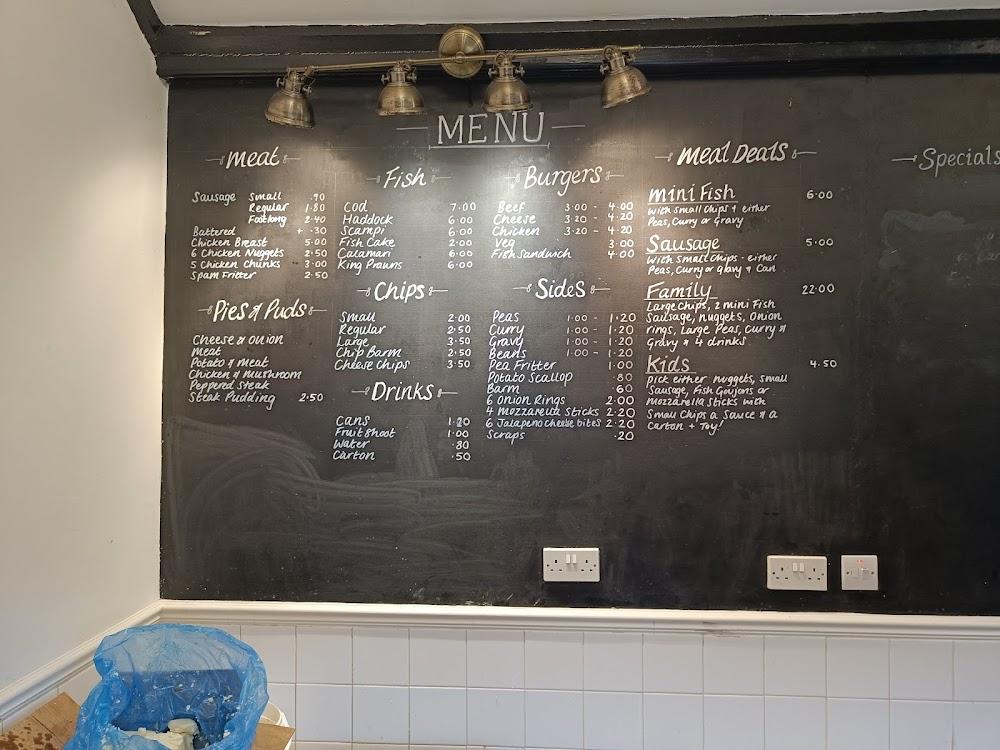 MENU
Meat
Sausage Small .90
Regular 1.80
Footlong 2.40
Battered + .30
Chicken Breast 5.00
6 Chicken Nuggets 2.50
5 Chicken Chunks 3.00
Spam Fritter 2.50
Pies & Puds
Cheese & Onion
Meat
Potato & Meat
Chicken & Mushroom
Peppered Steak
Steak Pudding 2.50
Fish
Cod 7.00
Haddock 6.00
Scampi 6.00
Fish Cake 2.00
Calamari 6.00
King Prawns 6.00
Chips
Small 2.00
Regular 2.50
Large 3.50
Chip Barm 2.50
Cheese Chips 3.50
Drinks
Cans 1.20
Fruitshoot 1.00
Water .80
Carton .50
Burgers
Beef 3.00 - 4.00
Cheese 3.20 - 4.20
Chicken 3.20 - 4.20
Veg 3.00
Fish Sandwich 4.00
Sides
Peas 1.00 - 1.20
Curry 1.00 - 1.20
Gravy 1.00 - 1.20
Beans 1.00 - 1.20
Pea Fritter 1.00
Potato Scallop .80
Barm .60
6 Onion Rings 2.00
4 Mozzarella Sticks 2.20
6 Jalapeno cheese bites 2.20
Scraps .20
Meal Deals
Mini Fish 6.00
With Small Chips + either
Peas, Curry or Gravy
Sausage 5.00
With Small Chips - either
Peas, Curry or Gravy & Can
Family 22.00
Large Chips, 2 Mini Fish
Sausage, Nuggets, Onion
rings, Large Peas, Curry &
Gravy & 4 drinks
Kids 4.50
Pick either nuggets, small
Sausage, Fish Goujons or
Mozzarella Sticks with
Small Chips a Sauce & a
Carton + Toy!
Specials